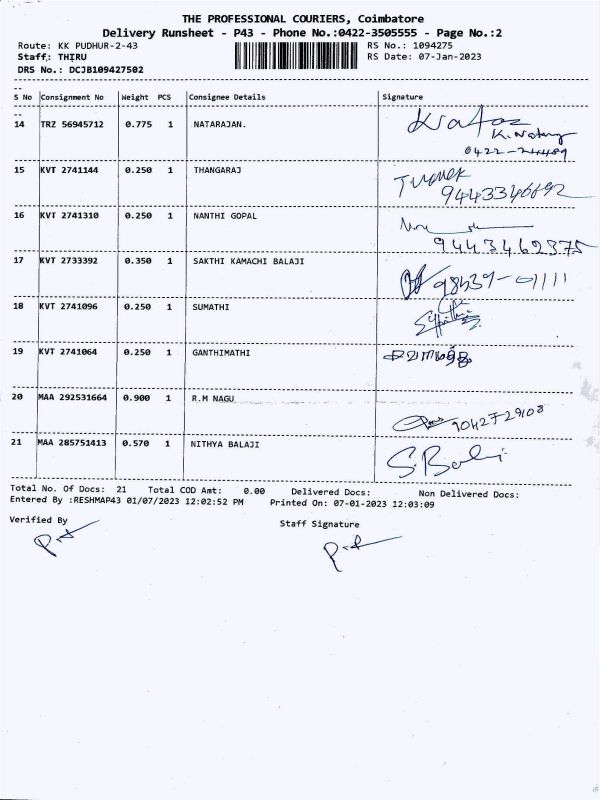 THE PROFESSIONAL COURIERS, Coimbatore
Delivery Runsheet - P43 - Phone No.:0422-3505555 - Page No.:2
Route: KK PUDHUR-2-43 RS No.: 1094275
Staff: THIRU RS Date: 07-Jan-2023
DRS No.: DCJB109427502
S No Consignment No Weight PCS Consignee Details Signature
14 TRZ 56945712 0.775 1 NATARAJAN.
15 KVT 2741144 0.250 1 THANGARAJ
16 KVT 2741310 0.250 1 NANTHI GOPAL
9443462375
17 KVT 2733392 0.350 1 SAKTHI KAMACHI BALAJI
98439-01111
18 KVT 2741096 0.250 1 SUMATHI
19 KVT 2741064 0.250 1 GANTHIMATHI
20 MAA 292531664 0.900 1 R.M NAGU
9042729108
21 MAA 285751413 0.570 1 NITHYA BALAJI S. Balaji
Total No. Of Docs: 21 Total COD Amt: 0.00 Delivered Docs: Non Delivered Docs:
Entered By :RESHMAP43 01/07/2023 12:02:52 PM Printed On: 07-01-2023 12:03:09
Verified By Staff Signature